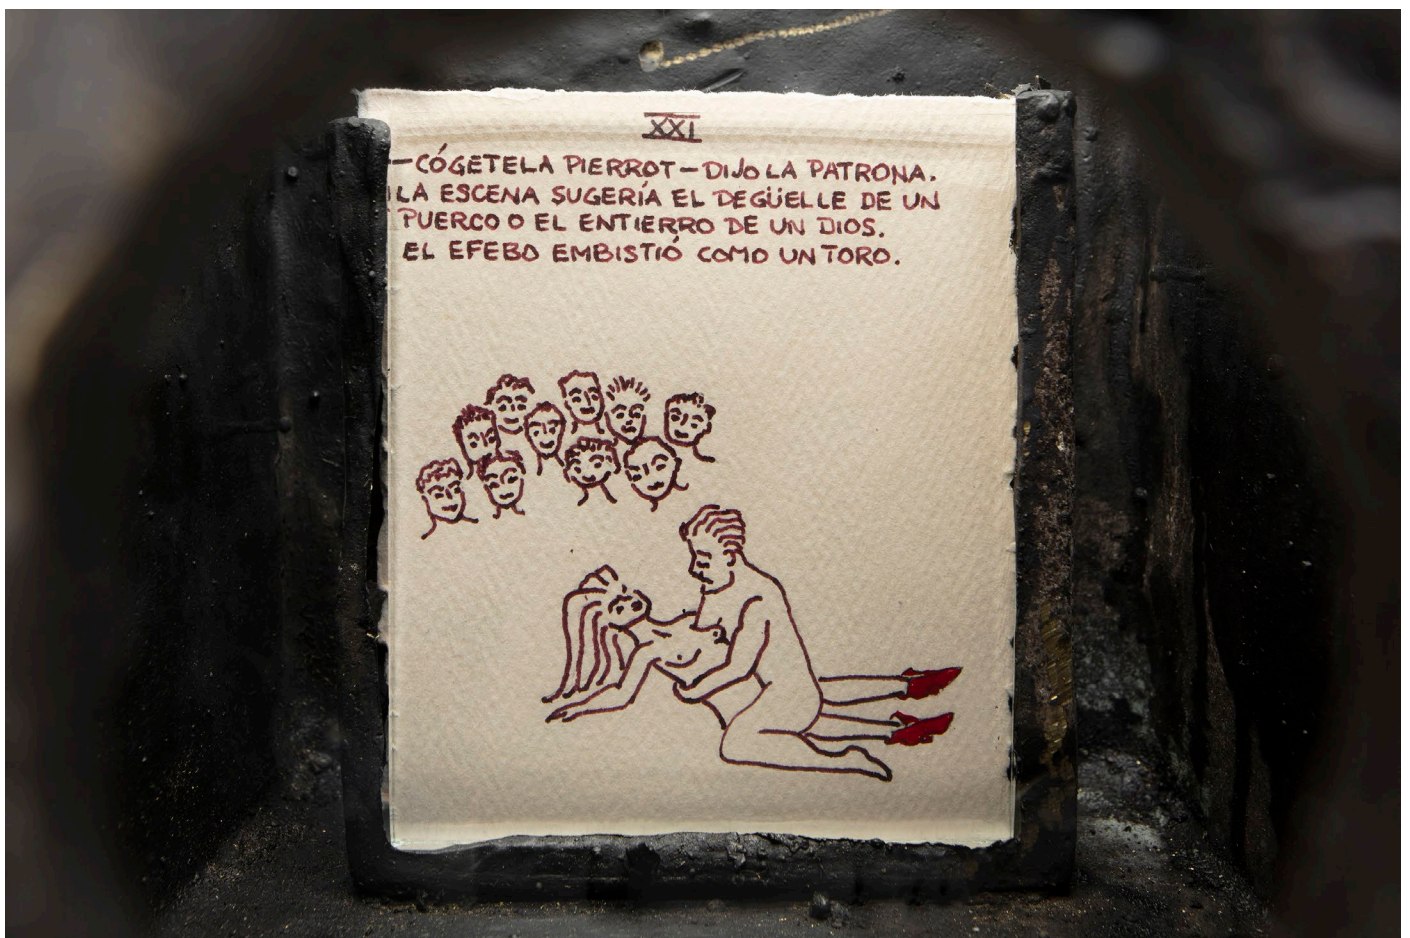 XXI
—CÓGETELA PIERROT—DIJO LA PATRONA.
LA ESCENA SUGERÍA EL DEGÜELLE DE UN
PUERCO O EL ENTIERRO DE UN DIOS.
EL EFEBO EMBISTIÓ COMO UN TORO.